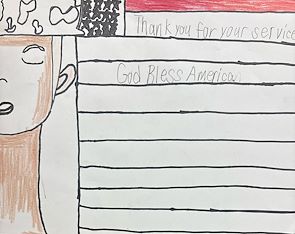 Thank you for your service
God Bless America